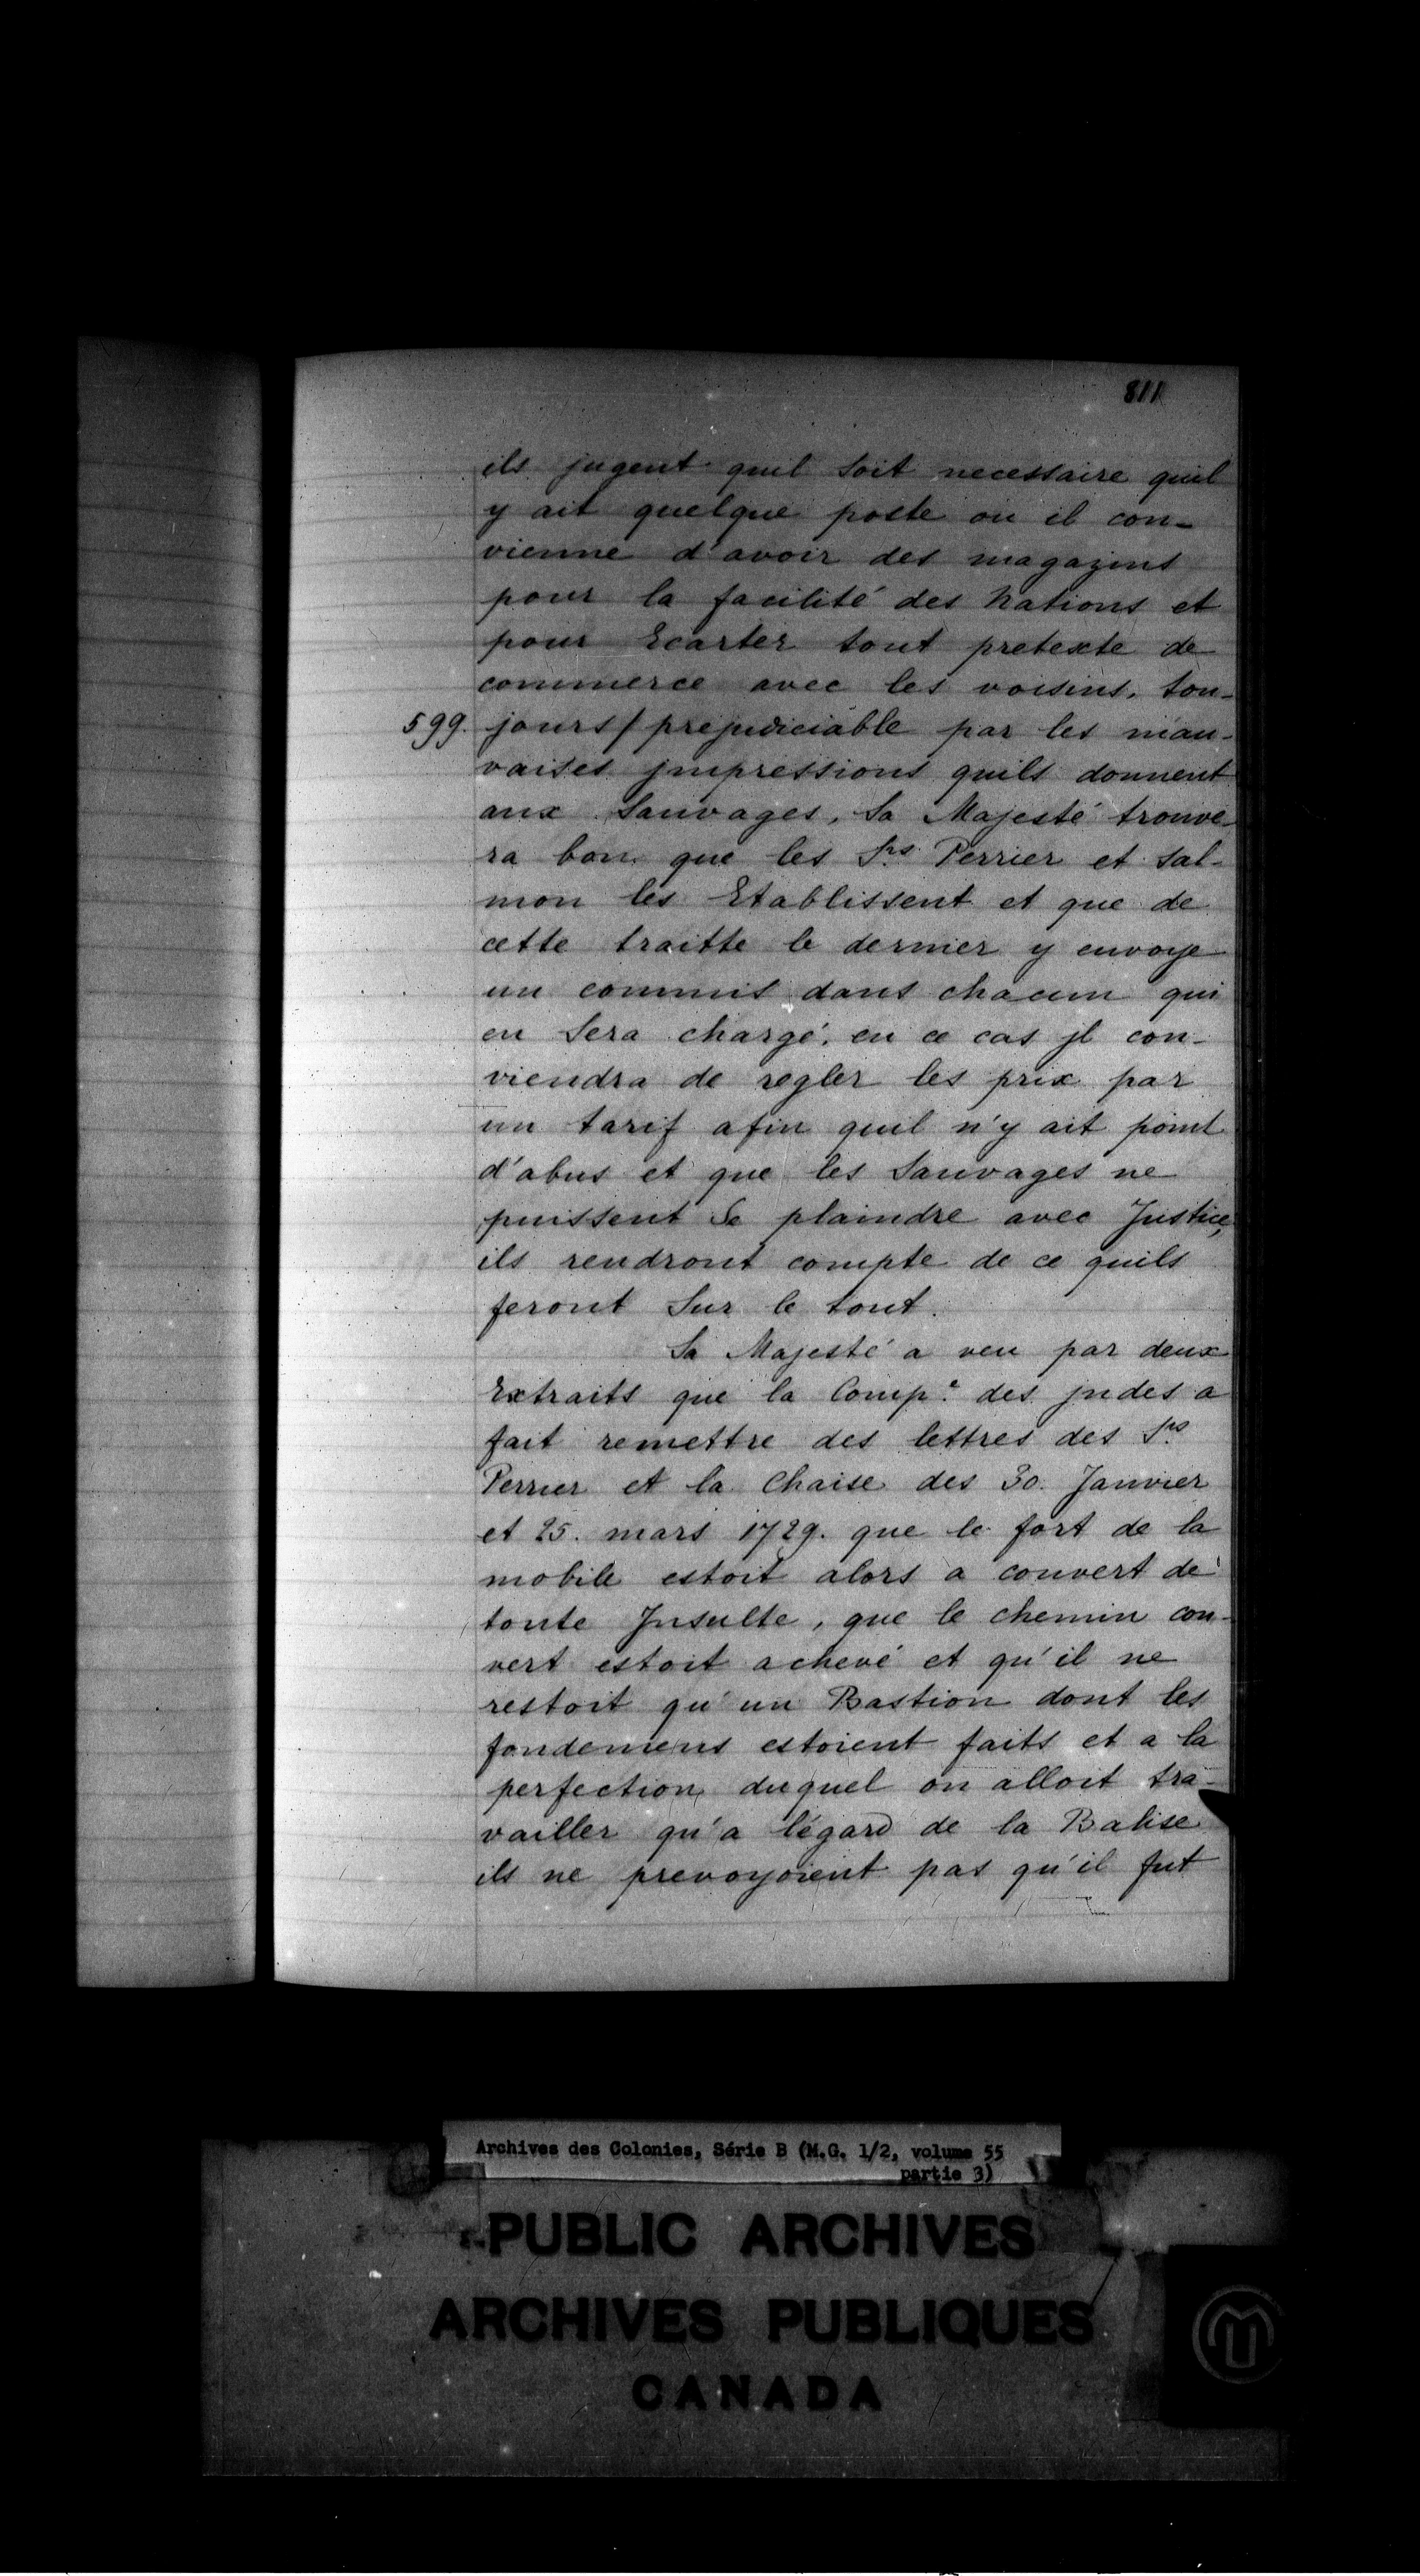 811
ils jugent quil soit necessaire quil
y ait quelque poste ou il con-
vienne d'avoir des magazins
pour la facilité des Nations et
pour Ecarter tout pretexte de
commerce avec les voisins, tou-
599. jours/prejudiciable par les mau-
vaises jmpressions quils donnent
aux Sauvages, Sa Majesté trouve-
ra bon que les Srs Perrier et Sal-
mon les Etablissent et que de
cette traitte le dernier y envoye
un commis dans chacun qui
en Sera chargé. en ce cas jl con-
viendra de regler les prix par
un tarif afin quil n'y ait point
d'abus et que les Sauvages ne
puissent Se plaindre avec Justice,
ils rendront compte de ce quils
feront Sur le tout.
Sa Majesté a veu par deux
Extraits que la Compe des jndes a
fait remettre des lettres des Srs
Perrier et la Chaise des 30. Janvier
et 25. mars 1729. que le fort de la
mobile estoit alors a couvert de
toute Jnsulte, que le chemin cou-
vert estoit achevé et qu'il ne
restoit qu'un Bastion dont les
fondemens estoient faits et a la
perfection duquel on alloit tra-
vailler qu'a légard de la Balise
ils ne prevoyoient pas qu'il fut
Archives des Colonies, Série B (M.G. 1/2, volume 55
partie 3)
PUBLIC ARCHIVES
ARCHIVES PUBLIQUES
CANADA